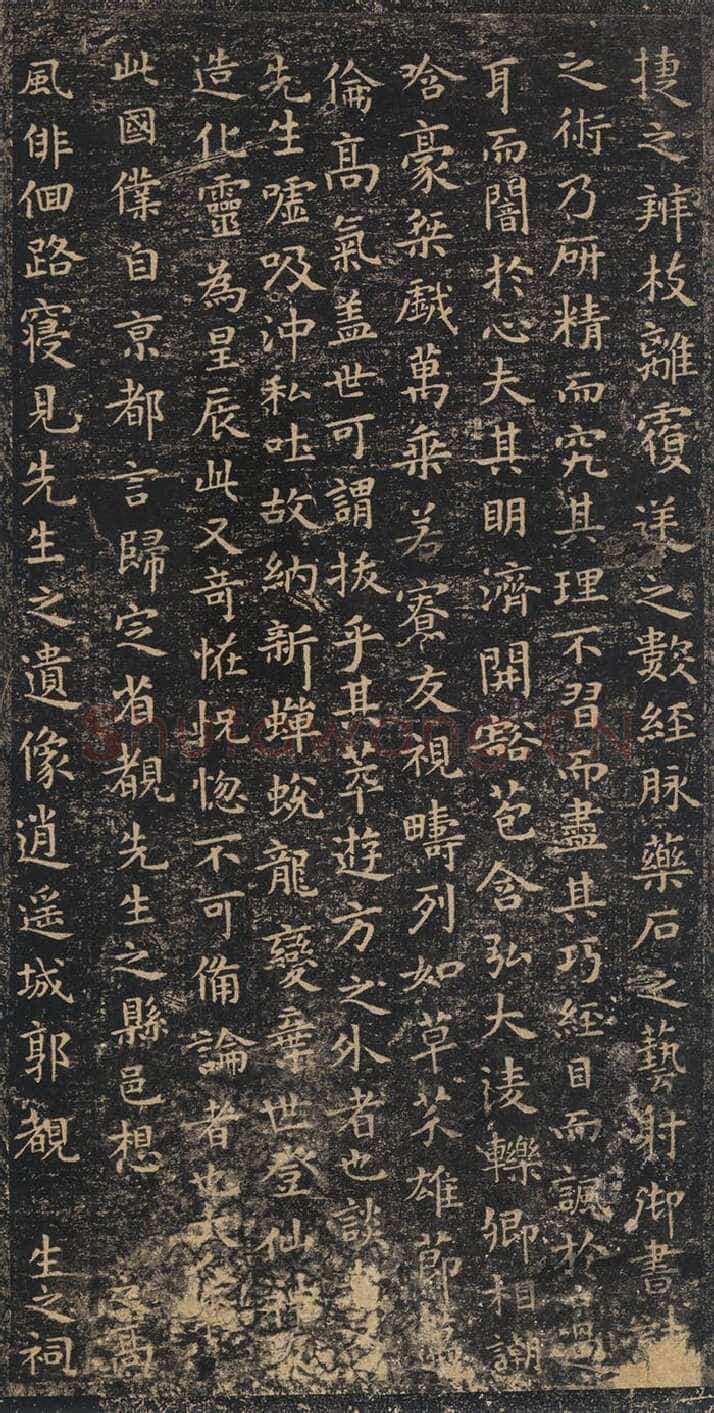 捷之辨枝離覆逆之數經脉藥石之藝射御書計
之術乃研精而究其理不習而盡其巧經目而諷於口過
耳而闇於心夫其明濟開豁苞含弘大淩轢卿相謿
哈豪桀戲萬乗若寮友視疇列如草芥雄節
倫高氣盖世可謂拔乎其萃遊方之外者也談
先生噓吸沖和吐故納新蟬蛻龍變棄世登仙神
造化靈為星辰此又奇恠怳惚不可俻論者也大
此國僕自京都言歸定省覩先生之縣邑想 高
風俳佪路寢見先生之遺像逍遥城郭覩 生之祠
Shufawang.CN